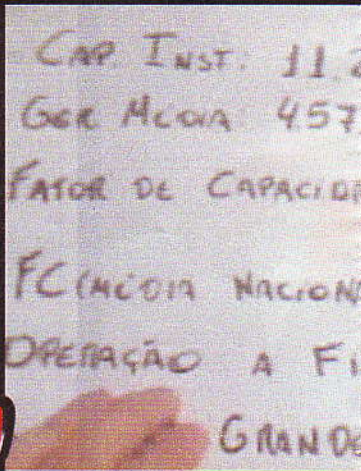 CAP. INST: 11.2
GER MÉDIA 457
FATOR DE CAPACIDA
FC (MÉDIA NACIONA
OPERAÇÃO A FI
GRANDE